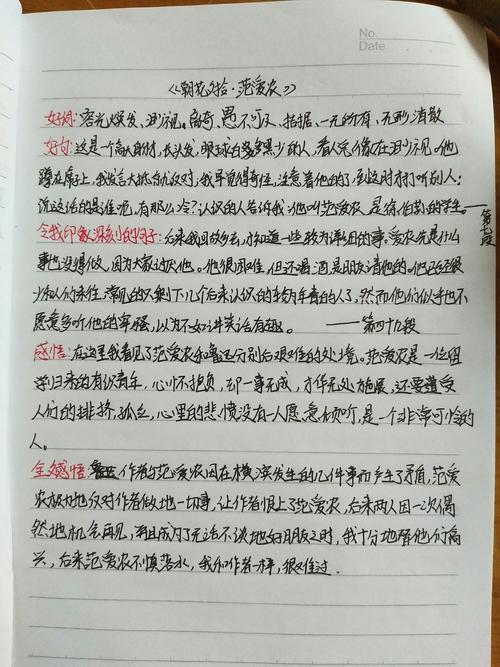 No.
Date
《朝花夕拾·范爱农》
好词：容光焕发、渺视。离奇、愚不可及、拮据、一无所有、无形消散
好句：这是一个高大身材，长头发，眼球白多黑少的人，看人总像在渺视。他
蹲在席子上，我发言大抵就反对；我早觉得奇怪，注意着他的了，到这时才打听别人：
说这话的是谁呢，有那么冷？认识的人告诉我说：他叫范爱农，是徐伯荪的学生。——
第七段
令我印象深刻的句子：后来我回故乡去，才知道一些较为详细的事。爱农先是什么
事也没得做，因为大家讨厌他。他很困难，但还喝酒，是朋友请他的。他已经很
少和人们来往，常见的只剩下几个后来认识的较为年青的人了，然而他们似乎也不
愿意多听他的牢骚，以为不如讲笑话有趣。 ——第四十九段
感悟：在这里我看见了范爱农和鲁迅分别后艰难的处境。范爱农是一位留
学归来的有识青年，心怀抱负，却一事无成，才华无处施展，还要遭受
人们的排挤，孤立，心里的悲愤没有一人愿意倾听，是一个非常可怜的
人。
全感悟：作者与范爱农因在横滨发生的几件事而产生了矛盾，范爱
农极力地反对作者做地一切事，让作者恨上了范爱农，后来两人因一次偶
然地机会再见，并且成为了无话不谈地好朋友之时，我十分地替他们高
兴，后来范爱农不慎落水，我和作者一样，很难过.